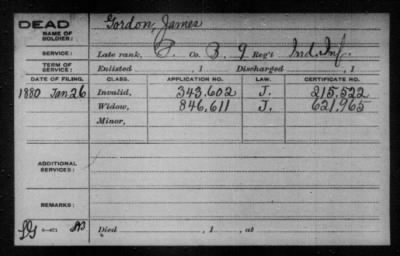 DEAD
NAME OF SOLDIER: Gordon, James
SERVICE: Late rank, P. Co. B. 9 Reg't Ind. Inf.
TERM OF SERVICE: Enlisted , 1 Discharged , 1
DATE OF FILING. CLASS. APPLICATION NO. LAW. CERTIFICATE NO.
1880 Jan 26 Invalid, 343,602 J. 215,522
Widow, 846,611 J. 621,965
Minor,
ADDITIONAL SERVICES:
REMARKS:
Died , 1 , at